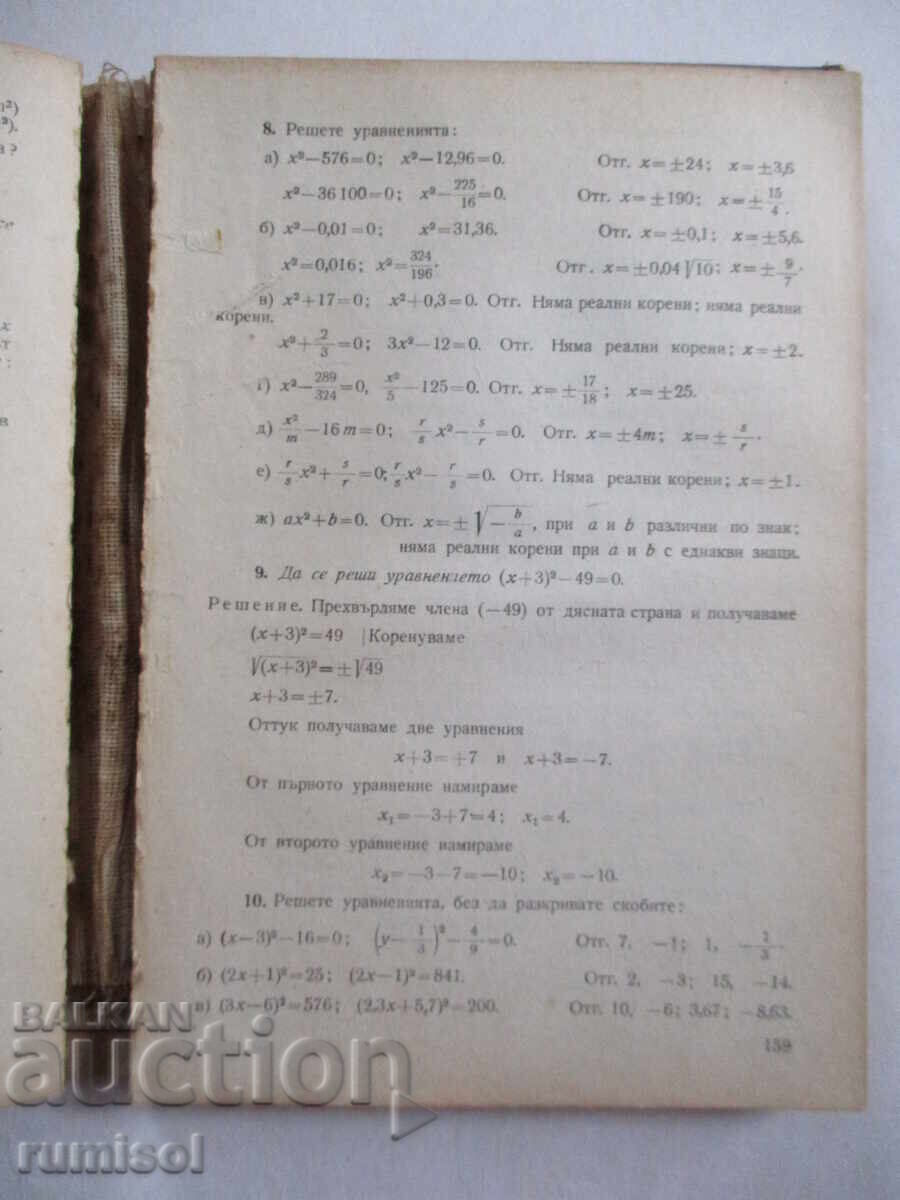 8. Решете уравненията:
а) x²—576=0; x²—12,96=0. Отг. x=±24; x=±3,6
x²—36 100=0; x²—225/16=0. Отг. x=±190; x=±15/4.
б) x²—0,01=0; x²=31,36. Отг. x=±0,1; x=±5,6.
x²=0,016; x²=324/196. Отг. x=±0,04√10; x=±9/7.
в) x²+17=0; x²+0,3=0. Отг. Няма реални корени; няма реални
корени.
x²+2/3=0; 3x²—12=0. Отг. Няма реални корени; x=±2.
г) x²—289/324=0, x²/5—125=0. Отг. x=±17/18; x=±25.
д) x²/m—16m=0; r/s x²—s/r=0. Отг. x=±4m; x=±s/r.
е) r/s x²+s/r=0; r/s x²—r/s=0. Отг. Няма реални корени; x=±1.
ж) ax²+b=0. Отг. x=±√—b/a, при a и b различни по знак;
няма реални корени при a и b с еднакви знаци.
9. Да се реши уравнението (x+3)²—49=0.
Решение. Прехвърляме члена (—49) от дясната страна и получаваме
(x+3)²=49 |Коренуваме
√(x+3)²=±√49
x+3=±7.
Оттук получаваме две уравнения
x+3=+7 и x+3=—7.
От първото уравнение намираме
x₁=—3+7=4; x₁=4.
От второто уравнение намираме
x₂=—3—7=—10; x₂=—10.
10. Решете уравненията, без да разкривате скобите:
а) (x—3)²—16=0; (y—1/3)²—4/9=0. Отг. 7, —1; 1, —1/3.
б) (2x+1)²=25; (2x—1)²=841. Отг. 2, —3; 15, —14.
в) (3x—6)²=576; (2,3x+5,7)²=200. Отг. 10, —6; 3,67; —8,63.
159
BALKAN
auction
rumisol